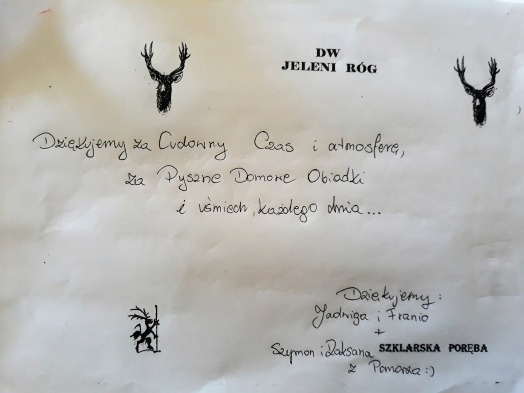 DW
JELENI RÓG
Dziękujemy za Cudowny Czas i atmosferę,
za Pyszne Domowe Obiadki
i uśmiech, każdego dnia...
Dziękujemy:
Jadwiga i Franio
+
Szymon i Roksana
SZKLARSKA PORĘBA
z Pomorza :)